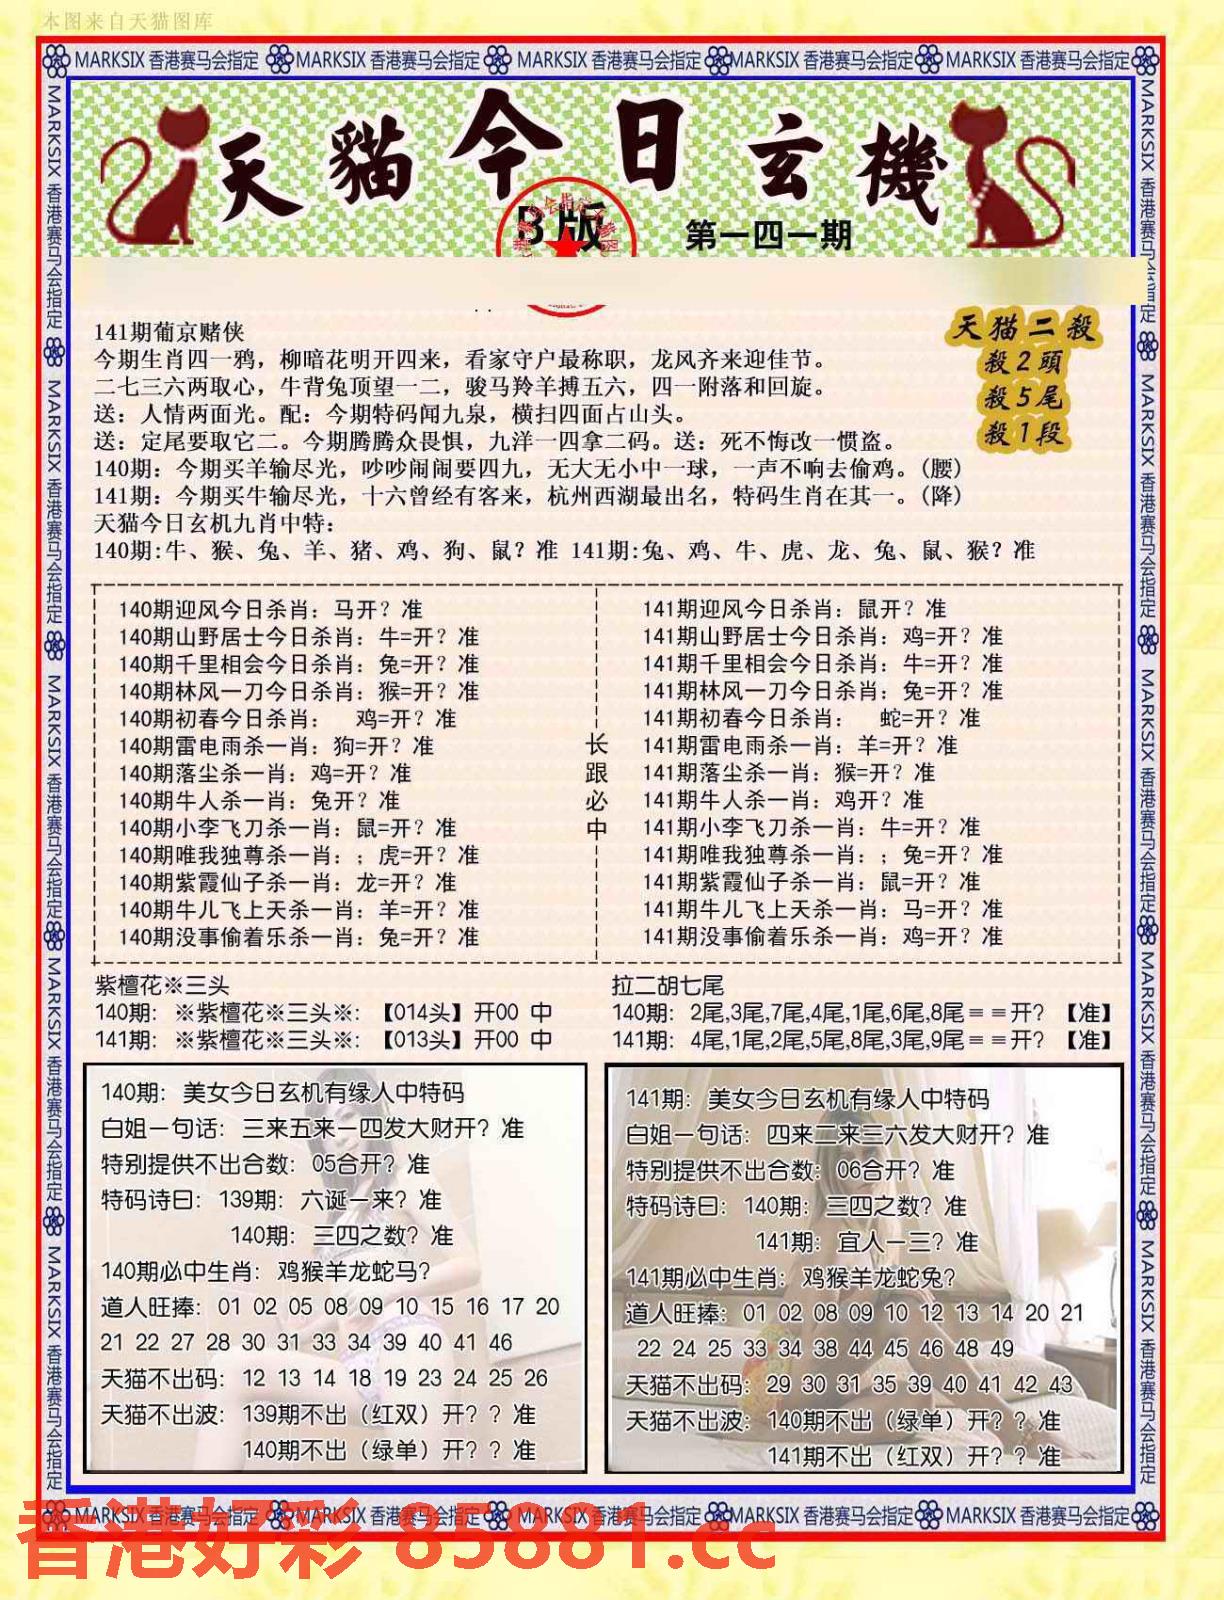 本图来自天猫图库
MARKSIX 香港赛马会指定 MARKSIX 香港赛马会指定 MARKSIX 香港赛马会指定 MARKSIX 香港赛马会指定 MARKSIX 香港赛马会指定
天貓今日玄機
B版
第一四一期
天猫二殺
殺2頭
殺5尾
殺1段
141期葡京赌侠
今期生肖四一鸦，柳暗花明开四来，看家守户最称职，龙风齐来迎佳节。
二七三六两取心，牛背兔顶望一二，骏马羚羊搏五六，四一附落和回旋。
送：人情两面光。配：今期特码闻九泉，横扫四面占山头。
送：定尾要取它二。今期腾腾众畏惧，九洋一四拿二码。送：死不悔改一惯盗。
140期：今期买羊输尽光，吵吵闹闹要四九，无大无小中一球，一声不响去偷鸡。（腰）
141期：今期买牛输尽光，十六曾经有客来，杭州西湖最出名，特码生肖在其一。（降）
天猫今日玄机九肖中特：
140期:牛、猴、兔、羊、猪、鸡、狗、鼠？准 141期:兔、鸡、牛、虎、龙、兔、鼠、猴？准
140期迎风今日杀肖：马开？准
140期山野居士今日杀肖：牛=开？准
140期千里相会今日杀肖：兔=开？准
140期林风一刀今日杀肖：猴=开？准
140期初春今日杀肖： 鸡=开？准
140期雷电雨杀一肖：狗=开？准
140期落尘杀一肖：鸡=开？准
140期牛人杀一肖：兔开？准
140期小李飞刀杀一肖：鼠=开？准
140期唯我独尊杀一肖：；虎=开？准
140期紫霞仙子杀一肖：龙=开？准
140期牛儿飞上天杀一肖：羊=开？准
140期没事偷着乐杀一肖：兔=开？准
长跟必中
141期迎风今日杀肖：鼠开？准
141期山野居士今日杀肖：鸡=开？准
141期千里相会今日杀肖：牛=开？准
141期林风一刀今日杀肖：兔=开？准
141期初春今日杀肖： 蛇=开？准
141期雷电雨杀一肖：羊=开？准
141期落尘杀一肖：猴=开？准
141期牛人杀一肖：鸡开？准
141期小李飞刀杀一肖：牛=开？准
141期唯我独尊杀一肖：；兔=开？准
141期紫霞仙子杀一肖：鼠=开？准
141期牛儿飞上天杀一肖：马=开？准
141期没事偷着乐杀一肖：鸡=开？准
紫檀花※三头
140期：※紫檀花※三头※：【014头】开00 中
141期：※紫檀花※三头※：【013头】开00 中
拉二胡七尾
140期：2尾,3尾,7尾,4尾,1尾,6尾,8尾＝＝开？【准】
141期：4尾,1尾,2尾,5尾,8尾,3尾,9尾＝＝开？【准】
140期：美女今日玄机有缘人中特码
白姐一句话：三来五来一四发大财开？准
特别提供不出合数：05合开？准
特码诗曰：139期：六诞一来？准
140期：三四之数？准
140期必中生肖：鸡猴羊龙蛇马？
道人旺捧：01 02 05 08 09 10 15 16 17 20
21 22 27 28 30 31 33 34 39 40 41 46
天猫不出码：12 13 14 18 19 23 24 25 26
天猫不出波：139期不出（红双）开？？准
140期不出（绿单）开？？准
141期：美女今日玄机有缘人中特码
白姐一句话：四来二来三六发大财开？准
特别提供不出合数：06合开？准
特码诗曰：140期：三四之数？准
141期：宜人一三？准
141期必中生肖：鸡猴羊龙蛇兔？
道人旺捧：01 02 08 09 10 12 13 14 20 21
22 24 25 33 34 38 44 45 46 48 49
天猫不出码：29 30 31 35 39 40 41 42 43
天猫不出波：140期不出（绿单）开？？准
141期不出（红双）开？？准
MARKSIX 香港赛马会指定 MARKSIX 香港赛马会指定 MARKSIX 香港赛马会指定 MARKSIX 香港赛马会指定
MARKSIX 香港赛马会指定 MARKSIX 香港赛马会指定 MARKSIX 香港赛马会指定 MARKSIX 香港赛马会指定 MARKSIX 香港赛马会指定
MARKSIX 香港赛马会指定 MARKSIX 香港赛马会指定 MARKSIX 香港赛马会指定 MARKSIX 香港赛马会指定 MARKSIX 香港赛马会指定
香港好彩 85881.cc